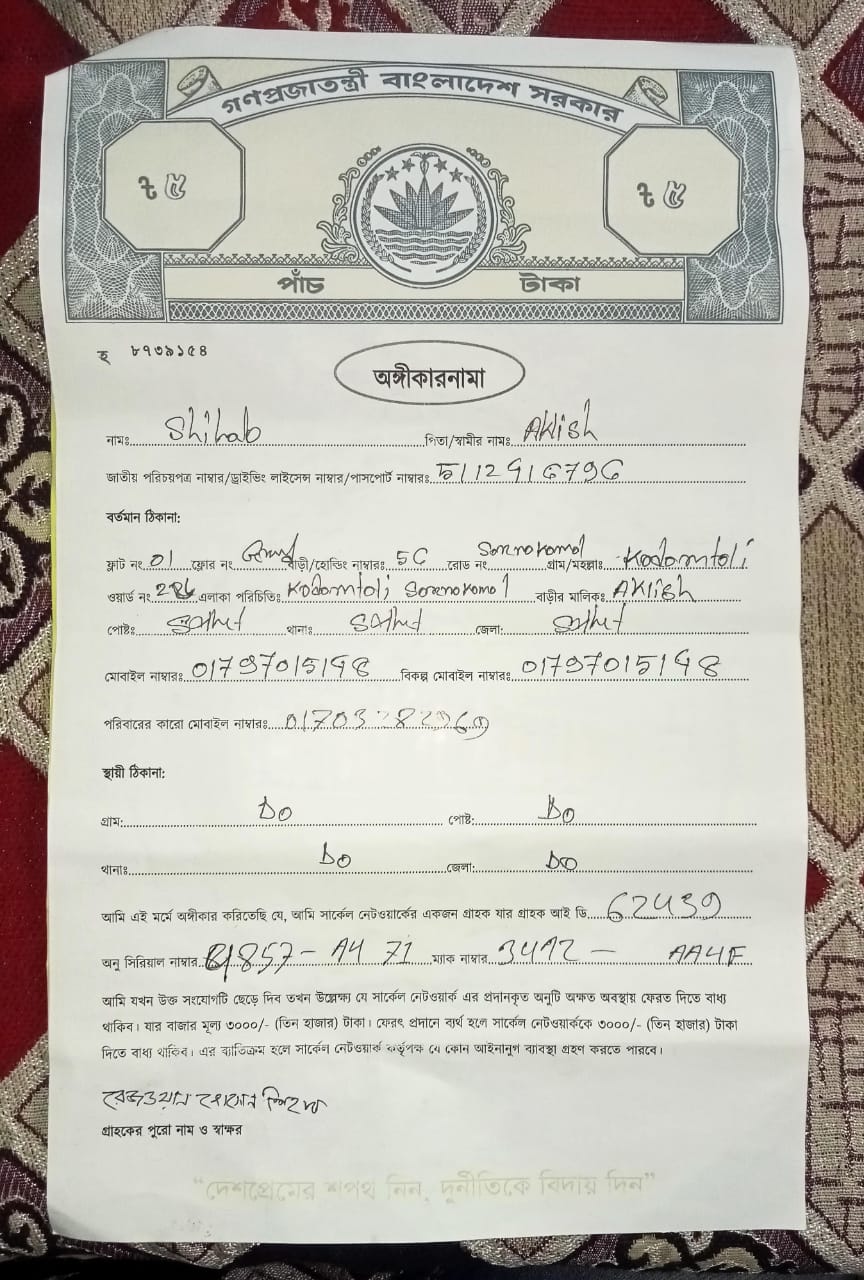 গণপ্রজাতন্ত্রী বাংলাদেশ সরকার
৳ ৫ ৳ ৫
পাঁচ টাকা
হ ৮৭৩৯১৫৪
অঙ্গীকারনামা
নামঃ Shihab পিতা/স্বামীর নামঃ AKlish
জাতীয় পরিচয়পত্র নাম্বার/ড্রাইভিং লাইসেন্স নাম্বার/পাসপোর্ট নাম্বারঃ
বর্তমান ঠিকানা:
ফ্লাট নং 01 ফ্লোর নং বাড়ী/হোল্ডিং নাম্বারঃ রোড নং গ্রাম/মহল্লাঃ Kodomtoli
ওয়ার্ড নং এলাকা পরিচিতিঃ Kodomtoli বাড়ীর মালিকঃ AKlish
পোষ্টঃ থানাঃ জেলা:
মোবাইল নাম্বারঃ 01797015198 বিকল্প মোবাইল নাম্বারঃ 01797015198
পরিবারের কারো মোবাইল নাম্বারঃ
স্থায়ী ঠিকানা:
গ্রাম: DO পোষ্ট: DO
থানাঃ DO জেলা: DO
আমি এই মর্মে অঙ্গীকার করিতেছি যে, আমি সার্কেল নেটওয়ার্কের একজন গ্রাহক যার গ্রাহক আই ডি 62439
অনু সিরিয়াল নাম্বার ম্যাক নাম্বার 3412 – AA4F
আমি যখন উক্ত সংযোগটি ছেড়ে দিব তখন উল্লেক্ষ্য যে সার্কেল নেটওয়ার্ক এর প্রদানকৃত অনুটি অক্ষত অবস্থায় ফেরত দিতে বাধ্য
থাকিব। যার বাজার মূল্য ৩০০০/- (তিন হাজার) টাকা। ফেরৎ প্রদানে ব্যর্থ হলে সার্কেল নেটওয়ার্ককে ৩০০০/- (তিন হাজার) টাকা
দিতে বাধ্য থাকিব। এর ব্যতিক্রম হলে সার্কেল নেটওয়ার্ক কর্তৃপক্ষ যে কোন আইনানুগ ব্যাবস্থা গ্রহণ করতে পারবে।
গ্রাহকের পুরো নাম ও স্বাক্ষর
“দেশপ্রেমের শপথ নিন, দুর্নীতিকে বিদায় দিন”